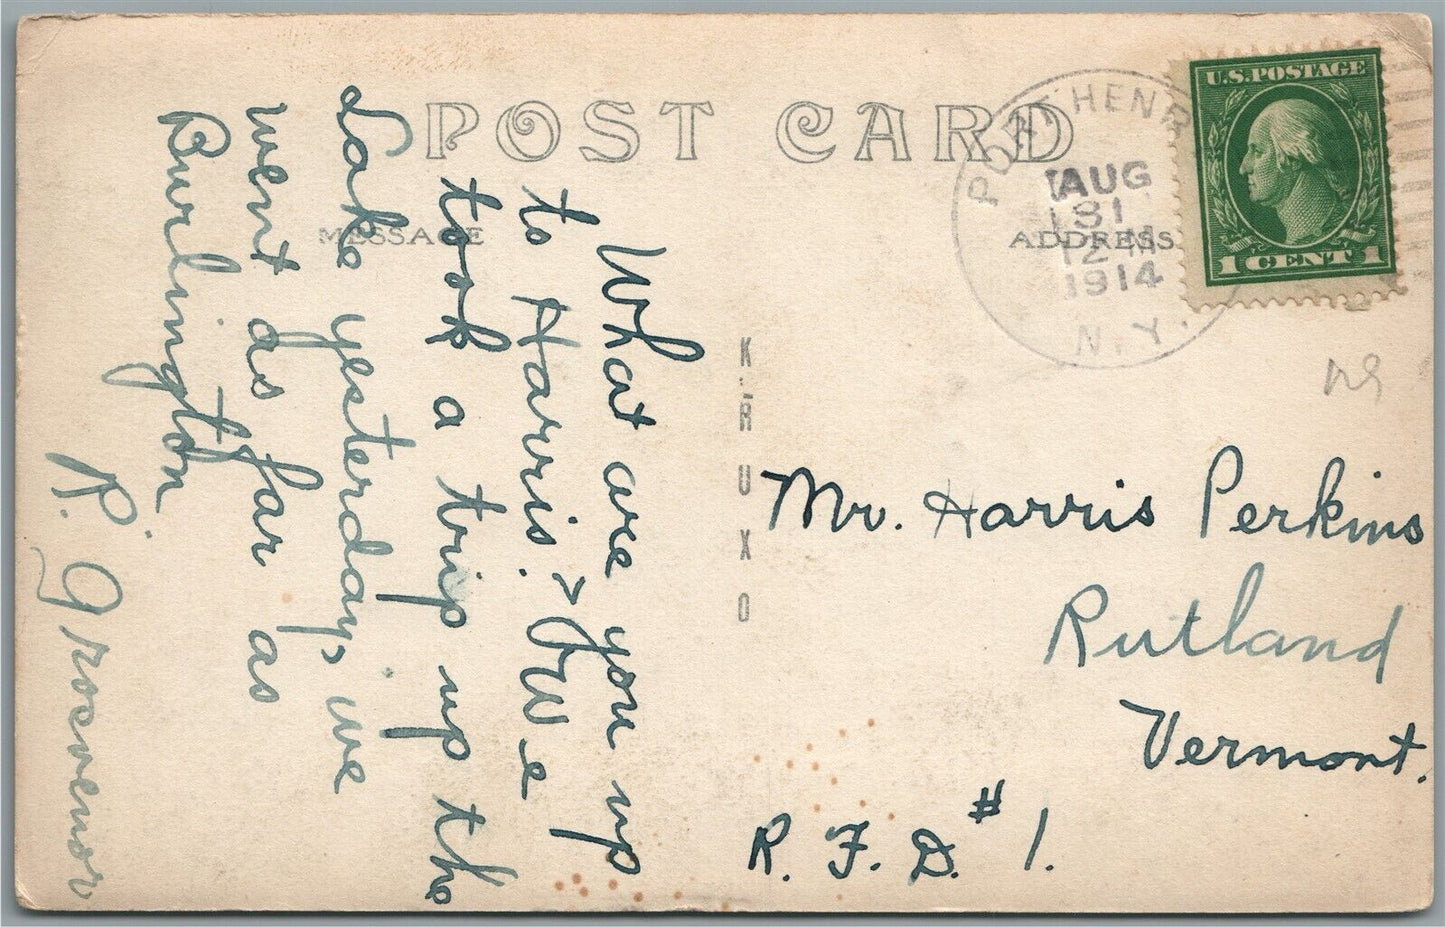 POST CARD
MESSAGE
ADDRESS
PORT HENRY
AUG
31
12 M
1914
N.Y.
U.S.POSTAGE
1 CENT 1
KRUXO
What are you up
to Harris. > We
took a trip up the
Lake yesterday, we
went as far as
Burlington
R. Grosvenor
Mr. Harris Perkins
Rutland
Vermont.
R. F. D. # 1.